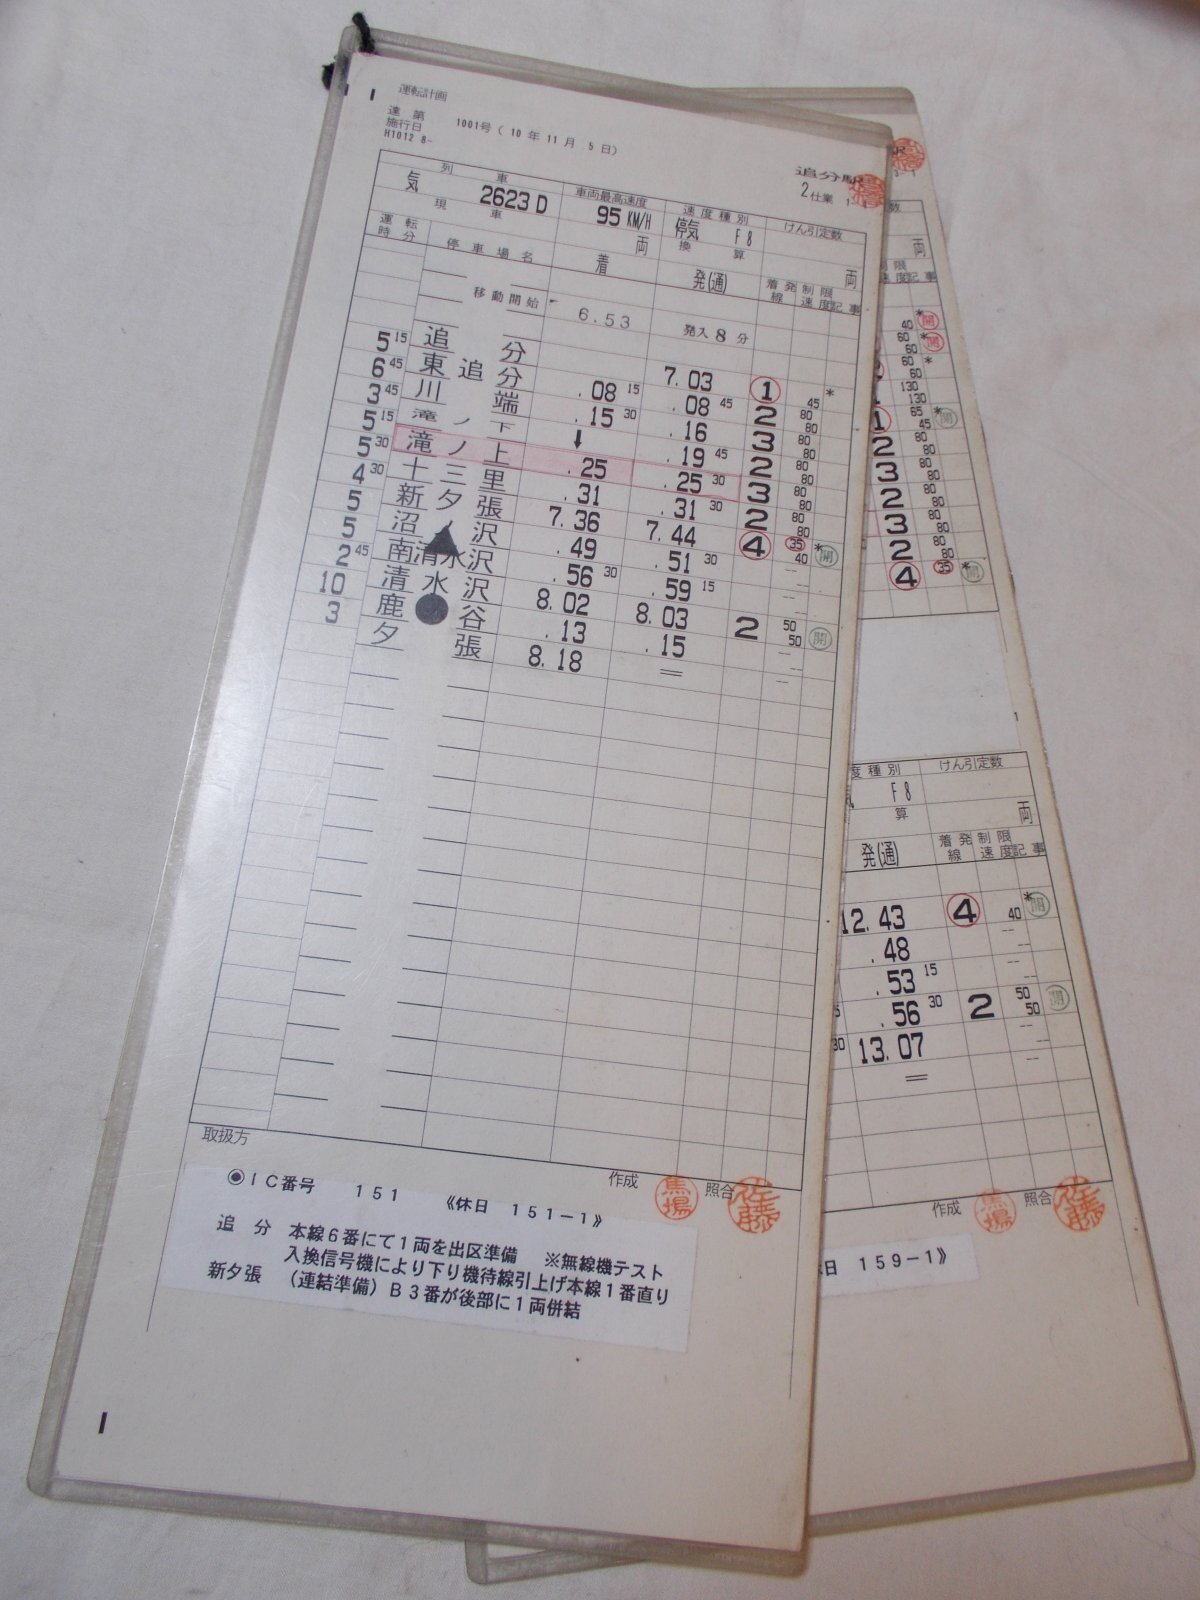 運転計画
達 第 1001号 ( 10 年 11 月 5 日)
施行日
H1012 8-
追分駅
2仕業 1-1
列車 車両最高速度 速度種別 けん引定数
気 2623D 95 KM/H 停気 F8
現車 両 換算 両
運転時分 停車場名 着 発(通) 着発線 制限速度 記事
移動開始 6.53 発入 8 分
追分 7.03 ① 45 *
5 15 東追分 .08 15 .08 45 2 80 80
6 45 川端 .15 30 .16 3 80 80
3 45 滝ノ下 ↓ .19 45 2 80 80
5 15 滝ノ上 .25 .25 30 3 80 80
5 30 十三里 .31 .31 30 2 80 80
4 30 新夕張 7.36 7.44 ④ 35 40 * 開
5 沼ノ沢 .49 .51 30 -- --
5 南清水沢 .56 30 .59 15 -- --
2 45 清水沢 8.02 8.03 2 50 50 開
10 鹿ノ谷 .13 .15 -- --
3 夕張 8.18 =
取扱方
作成 馬場 照合 佐藤
◉IC番号 151 《休日 151-1》
追分 本線6番にて1両を出区準備 ※無線機テスト
入換信号機により下り機待線引上げ本線1番直り
新夕張 (連結準備) B3番が後部に1両併結
両
制限速度 記事
40 * 開
60
60 * 開
60 *
60
130
130
① 65 45 * 開
2 80 80
3 80 80
2 80 80
3 80 80
2 80 80
④ 35 * 開
度種別 けん引定数
F8
算 両
発(通) 着発線 制限速度 記事
12.43 ④ 40 * 開
.48 -- --
.53 15 -- --
.56 30 2 50 50 開
30 13.07 -- --
=
作成 馬場 照合 佐藤
日 159-1》